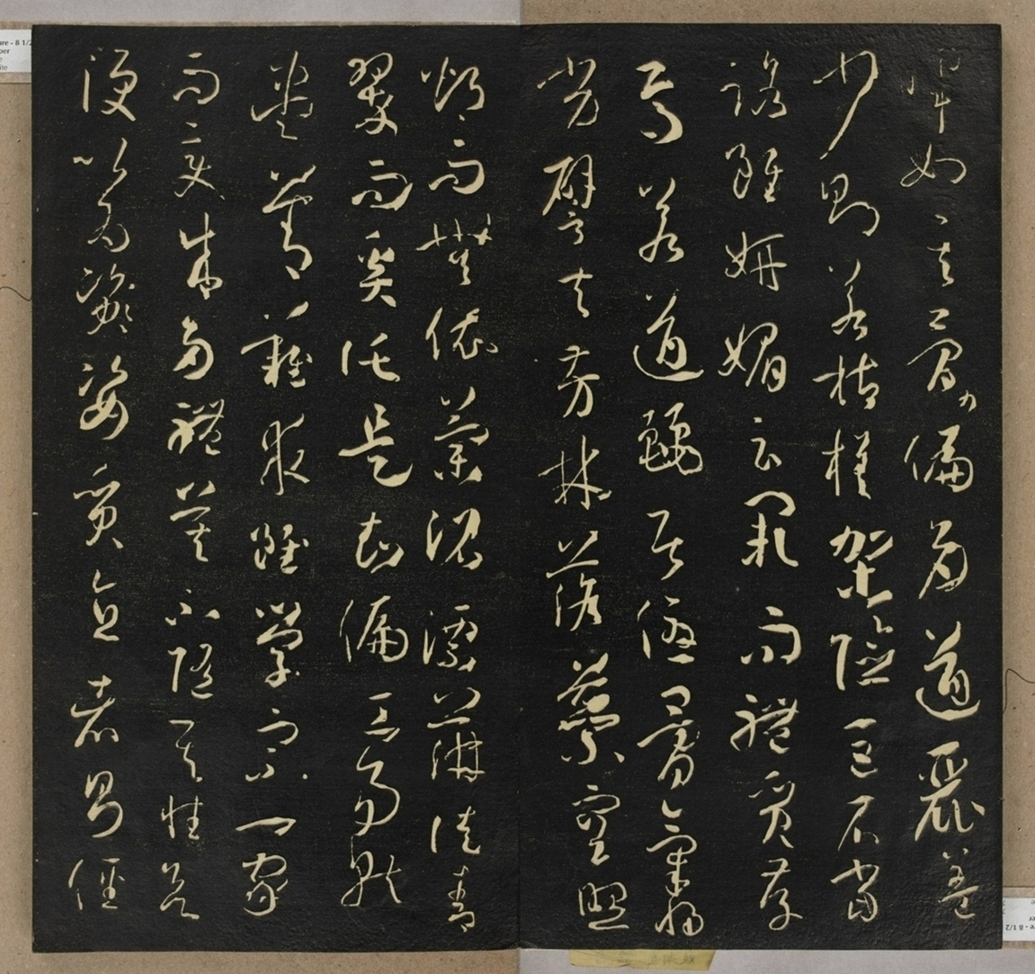 暉如其骨力偏多遒麗蓋
少則若枯槎架險巨石當
路雖妍媚云闕而體質存
焉若遒麗居優骨氣將
劣譬夫芳林落蘂空照
灼而無依蘭沼漂蓱徒青
翠而奚託是知偏工易就
盡善難求雖學宗一家
而變成多體莫不隨其性欲
便以為姿質直者則徑